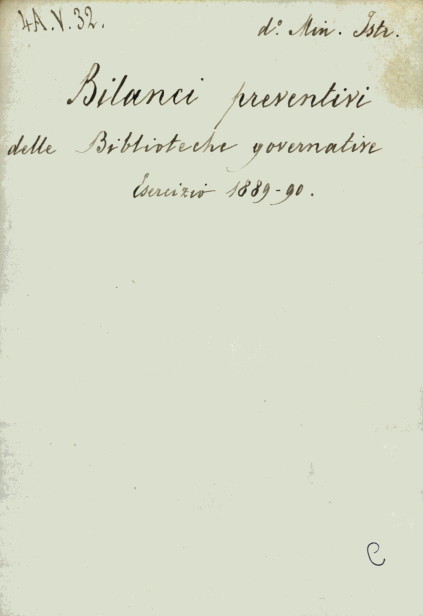 4A.V.32.
d.º Min. Istr.
Bilanci preventivi
delle Biblioteche governative
Esercizio 1889-90.
C